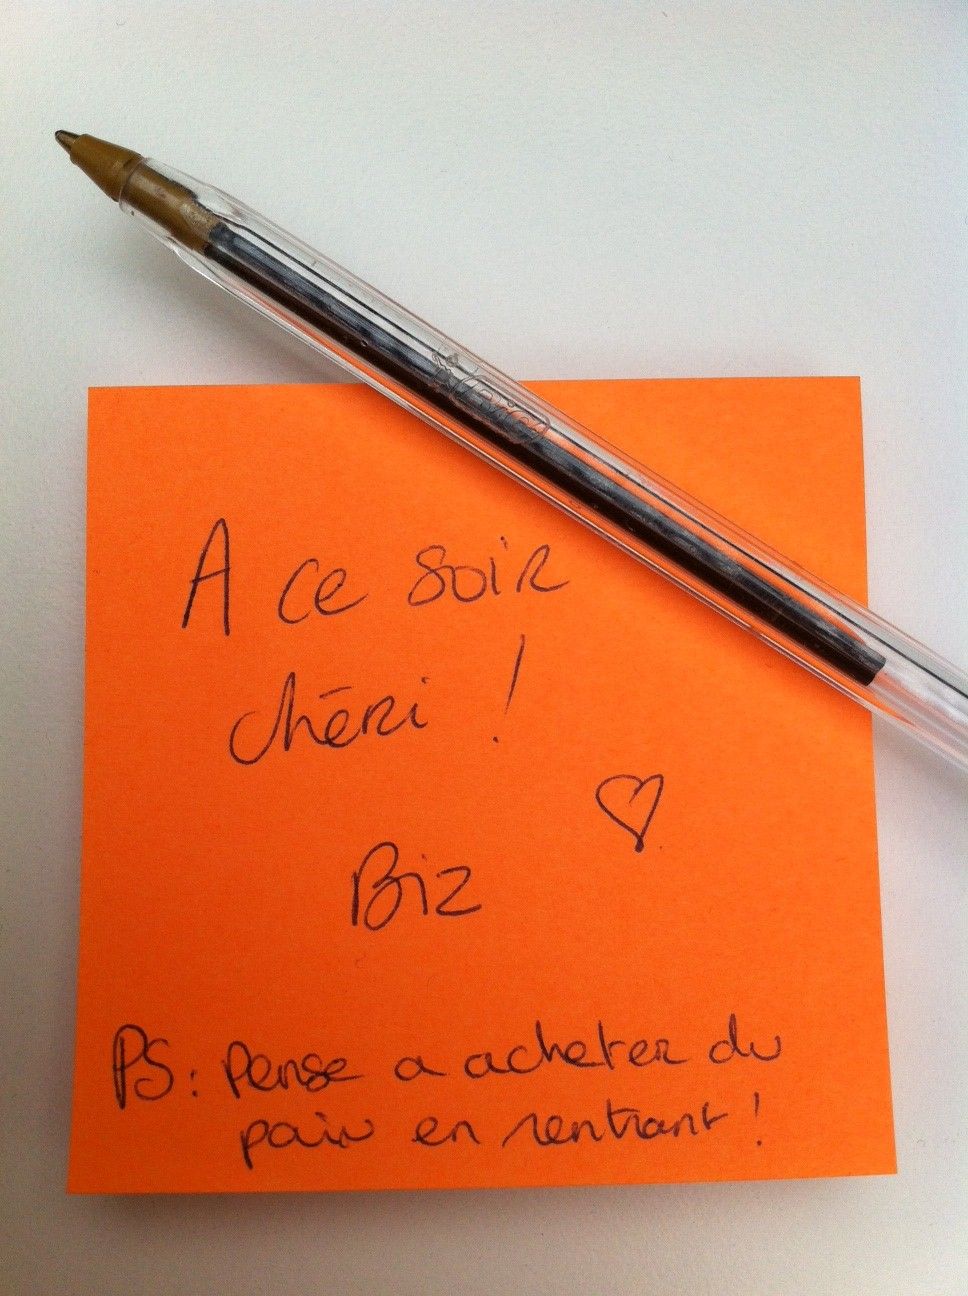 A ce soir
chéri !
Biz
PS : Pense a acheter du
pain en rentrant !